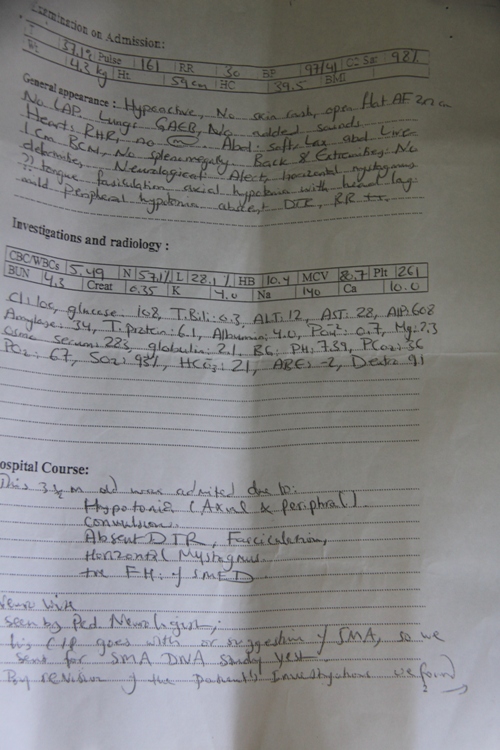 Examination on Admission:
T 37.1°C Pulse 161 RR 30 BP 97/41 O2 Sat 98%
Wt 4.3 kg Ht 54 cm HC 39.5 BMI
General appearance: Hyperactive, No skin rash, open flat AF 2x2 cm
No LAP. Lungs GAEB, No added sounds
Heart: RHR, no Abd: soft, lax abd Liver
1 cm BCM, No splenomegaly Back & Extremities: No
deformities, Neurological Alert, horizontal nystagmus
tongue fasiculation, axial hypotonia with head lag
and Peripheral hypotonia absent DTR,
Investigations and radiology :
CBC/WBCs 5.49 N 57.1% L 28.1% HB 10.4 MCV Plt 261
BUN 4.3 Creat 0.35 K 4.0 Na 140 Ca 10.0
Cl: 106, glucose: 108, T.Bili: 0.3, ALT: 12, AST: 28, AlP: 608
Amylase: 34, T. protein: 6.1, Albumin: 4.0, 0.7, Mg: 2.3
globulin: 2.1, BG: PH: 7.39, PCO2: 36
PO2: 67, SO2: 93%, HCO3: 21, ABE: -2, 91
ospital Course:
This m old was admited due to:
Hypotonia (Axial & Peripheral)
Convulsion
Absent DTR, Fasciculation,
Horizontal Nystagmus
+ve FH: of SMED
seen by Ped. Neurologist,
his C/P goes with or suggestion of SMA, so we
sent for SMA DNA study yest
By revision of the patient's Investigations we found